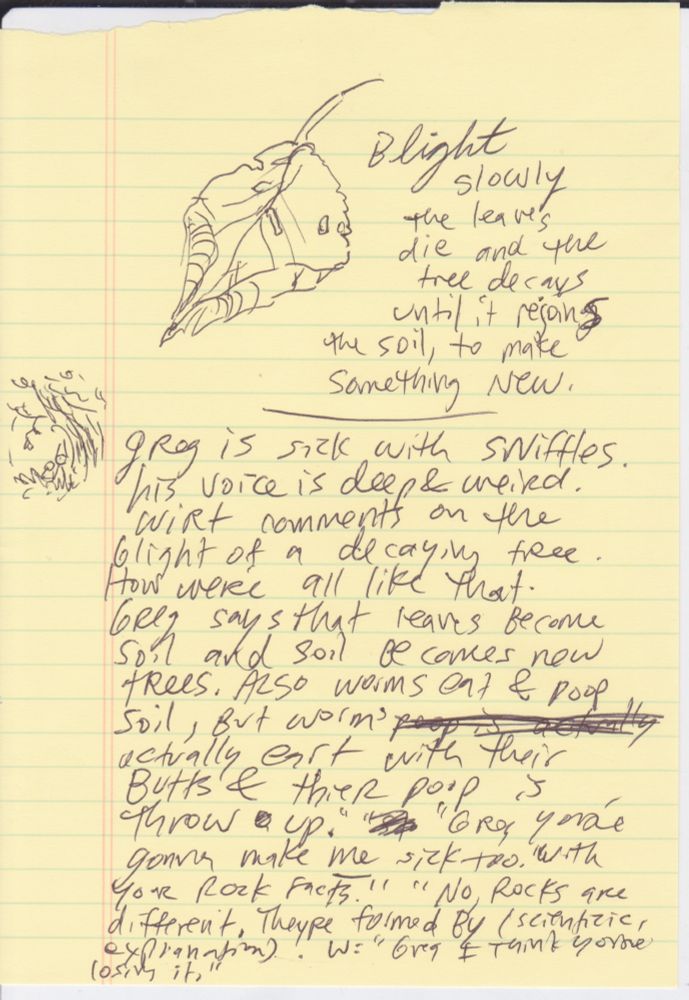 Blight
slowly
the leaves
die and the
tree decays
until it rejoins
the soil, to make
something new.
Greg is sick with sniffles.
his voice is deep & weird.
Wirt comments on the
blight of a decaying tree.
How were all like that.
Greg says that leaves become
soil and soil becomes new
trees. Also worms eat & poop
soil, But worms poop is actually
actually eart with their
Butts & thier poop is
throw up." "Greg youre
gonna make me sick too. "with
your Rock Facts." "No, Rocks are
different. Theyre formed By (scientific,
explanation). W: "Greg I think youre
losing it."